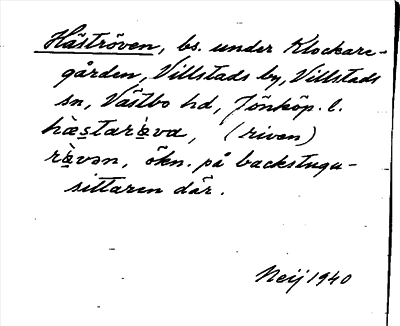 Häströven, bs. under Klockare-
gården, Villstads by, Villstads
sn, Västbo hd, Jönköp. l.
hæ̀starø̀va, (riven)
rø̀vən, ökn. på backstugu-
sittaren där.
Neij 1940